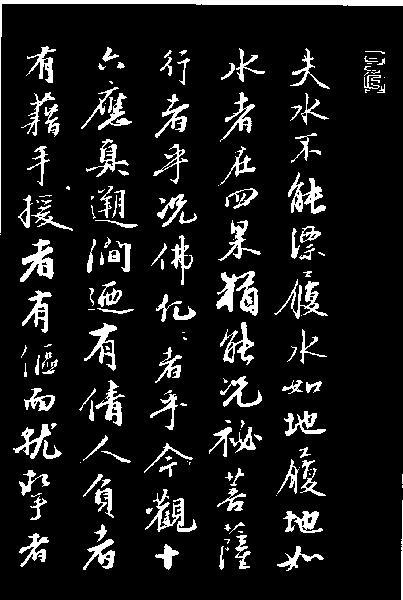 夫水不能漂履水如地履地如
水者在四果猶能况祕菩薩
行者乎况佛者乎今觀十
六應真遡澗迺有倩人負者
有藉手援者有傴而就者